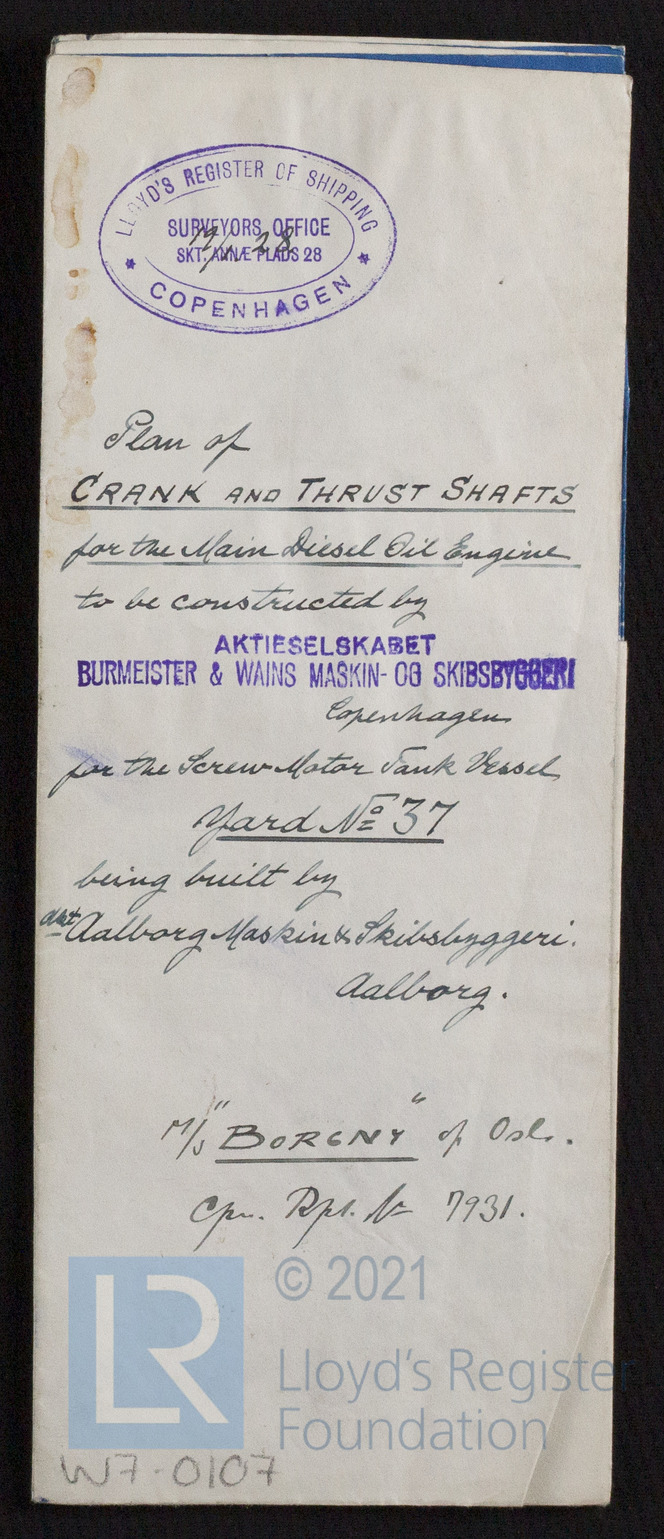 LLOYD'S REGISTER OF SHIPPING
SURVEYORS OFFICE
SKT. ANNÆ PLADS 28
COPENHAGEN
Plan of
CRANK AND THRUST SHAFTS
for the Main Diesel Oil Engine
to be constructed by
AKTIESELSKABET
BURMEISTER & WAINS MASKIN- OG SKIBSBYGGERI
Copenhagen
for the Screw Motor Tank Vessel
Yard No 37
being built by
Aalborg Maskin & Skibsbyggeri.
Aalborg.
M/S "BORGNY" of Oslo.
Cpn. Rpt. No 7931.
© 2021
LR
Lloyd's Register
Foundation
W7-0107